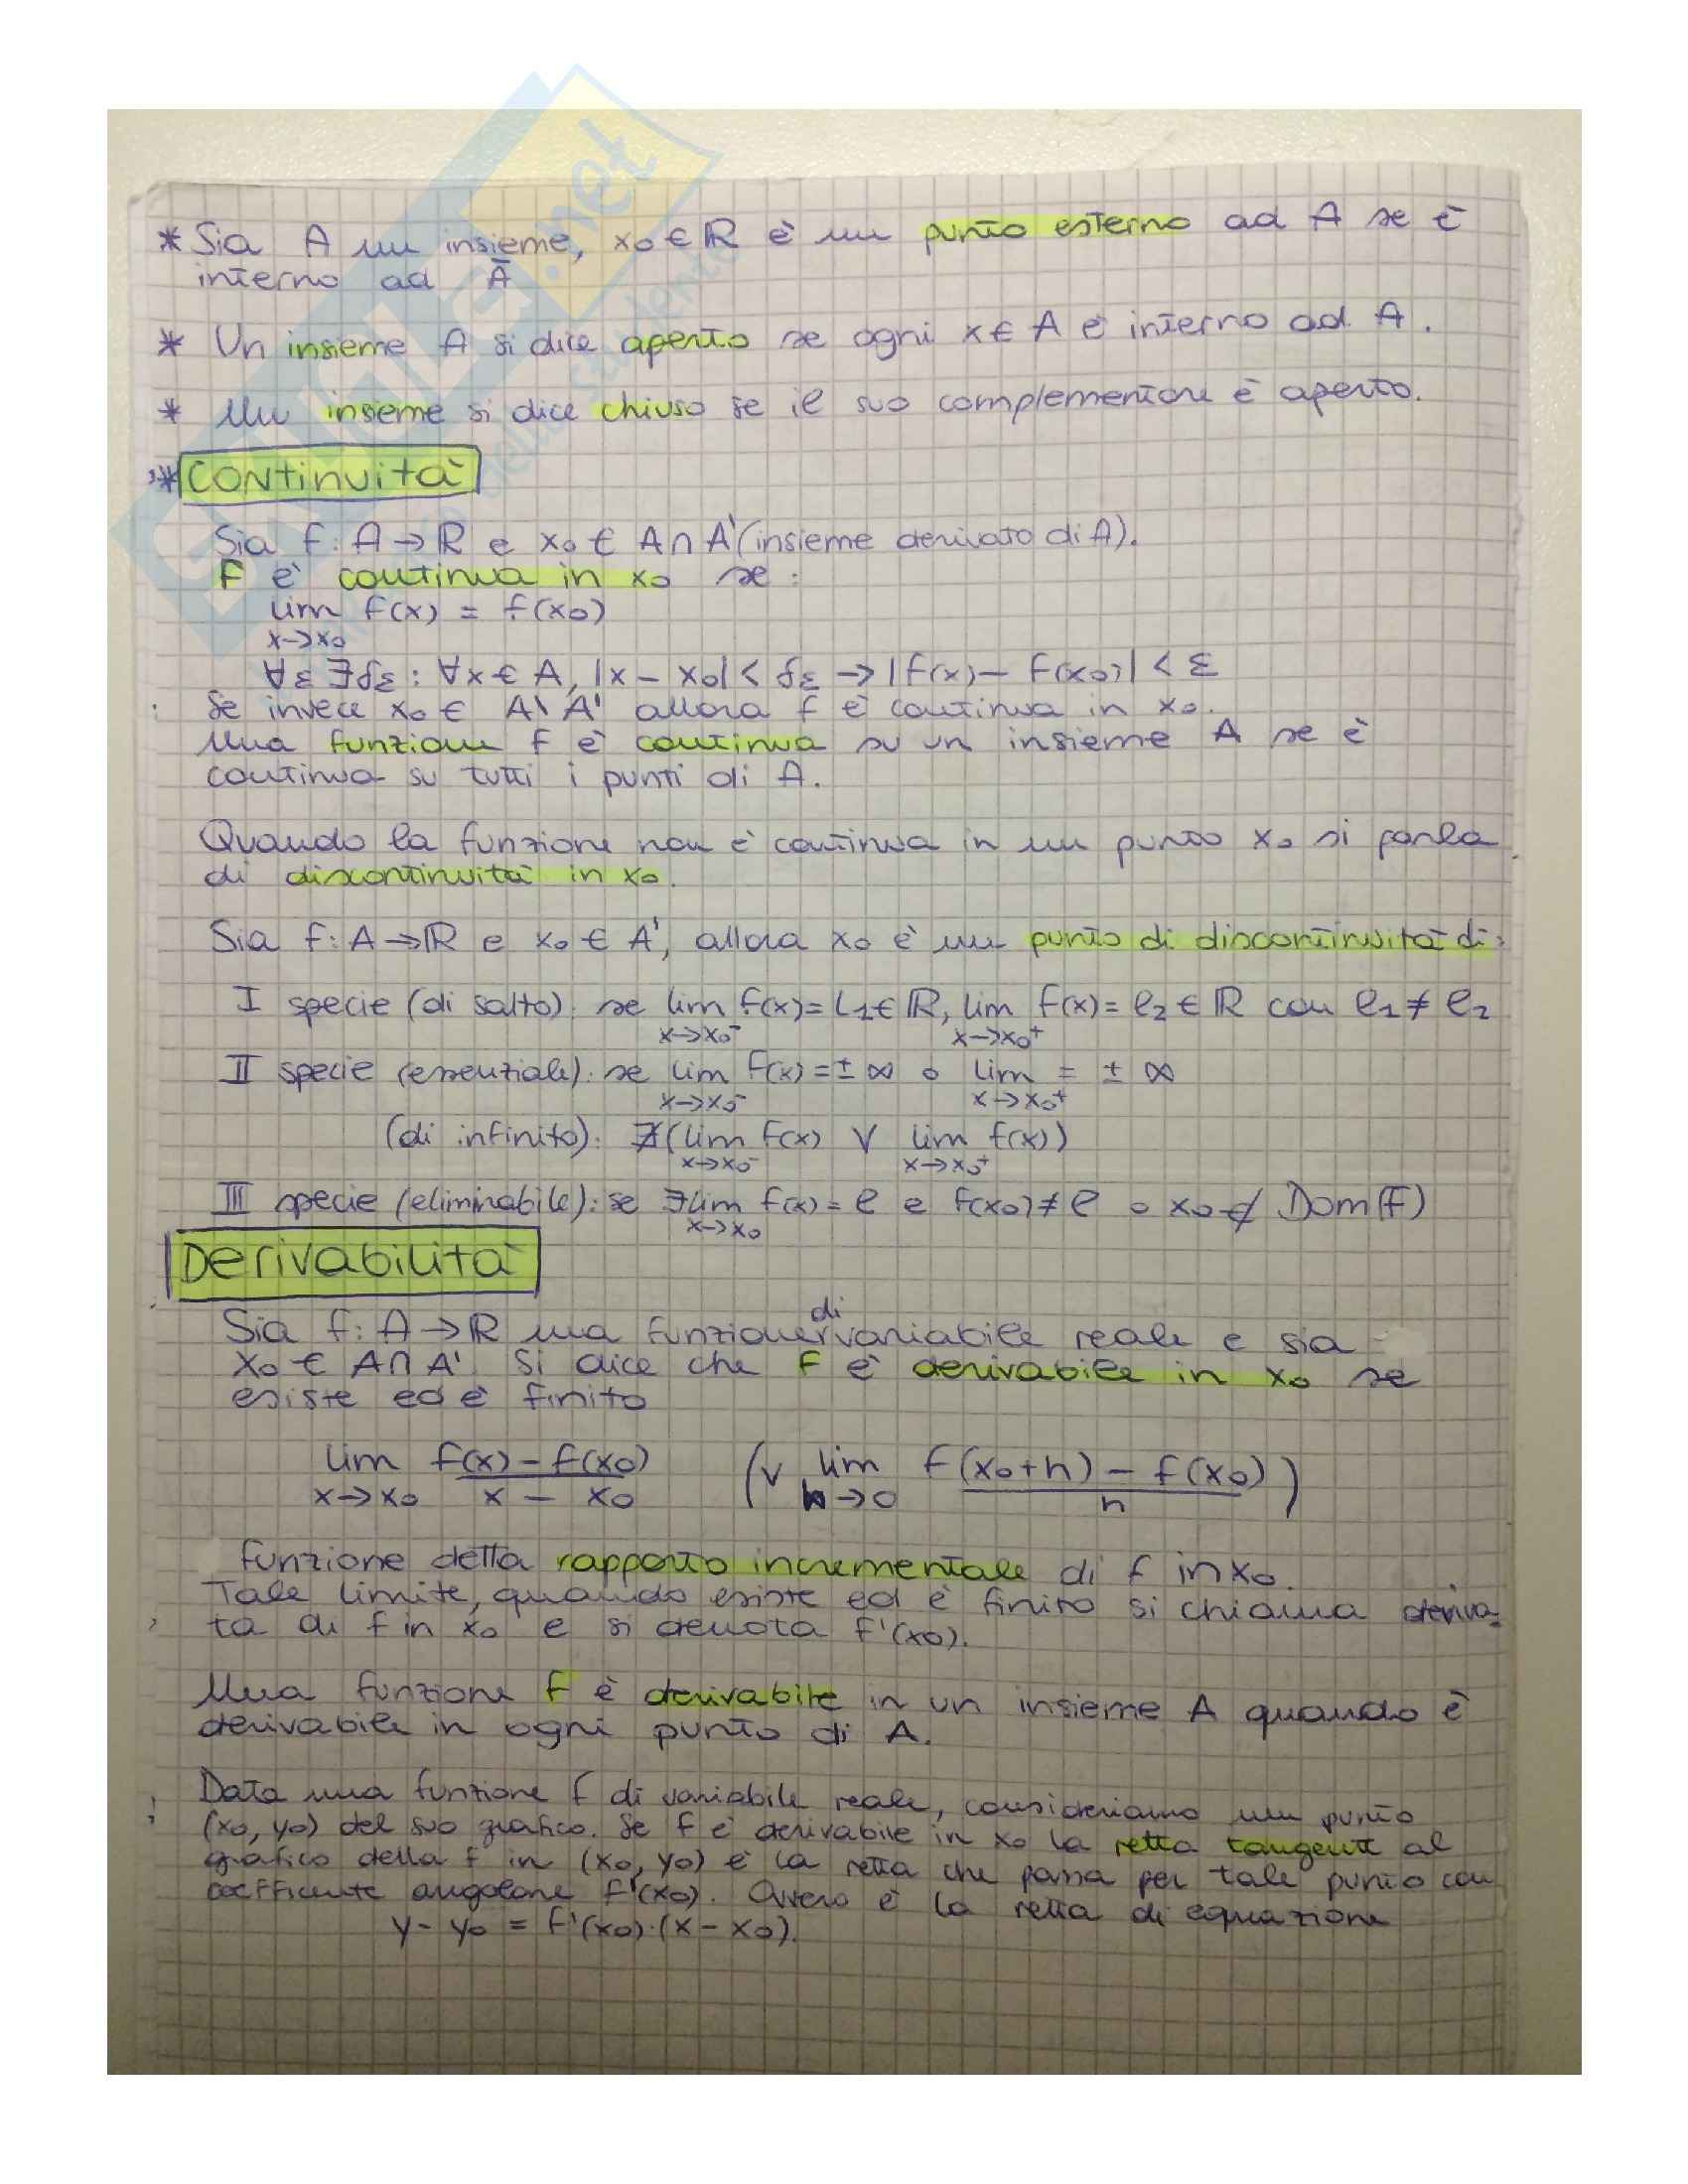 * Sia A un insieme, x₀ ∈ ℝ è un punto esterno ad A se è
interno ad Ā
* Un insieme A si dice aperto se ogni x ∈ A è interno ad A.
* Un insieme si dice chiuso se il suo complementare è aperto.
* CONTINUITÀ
Sia f: A → ℝ e x₀ ∈ A ∩ A' (insieme derivato di A).
F è continua in x₀ se:
lim f(x) = f(x₀)
x→x₀
∀ε ∃δε : ∀x ∈ A, |x - x₀| < δε → |f(x) - f(x₀)| < ε
Se invece x₀ ∈ A \ A' allora f è continua in x₀.
Una funzione f è continua su un insieme A se è
continua su tutti i punti di A.
Quando la funzione non è continua in un punto x₀ si parla
di discontinuità in x₀.
Sia f: A → ℝ e x₀ ∈ A', allora x₀ è un punto di discontinuità di:
I specie (di salto): se lim f(x) = l₁ ∈ ℝ, lim f(x) = l₂ ∈ ℝ con l₁ ≠ l₂
x→x₀⁻ x→x₀⁺
II specie (essenziale): se lim f(x) = ± ∞ o lim = ± ∞
x→x₀⁻ x→x₀⁺
(di infinito): ∄ (lim f(x) ∨ lim f(x))
x→x₀⁻ x→x₀⁺
III specie (eliminabile): se ∃ lim f(x) = l e f(x₀) ≠ l o x₀ ∉ Dom(F)
x→x₀
DERIVABILITÀ
Sia f: A → ℝ una funzione di variabile reale e sia
x₀ ∈ A ∩ A'. Si dice che F è derivabile in x₀ se
esiste ed è finito
lim f(x) - f(x₀) (∨ lim f(x₀+h) - f(x₀))
x→x₀ x - x₀ h→0 h
funzione detta rapporto incrementale di f in x₀.
Tale limite, quando esiste ed è finito si chiama deriva-
ta di f in x₀ e si denota f'(x₀).
Una funzione F è derivabile in un insieme A quando è
derivabile in ogni punto di A.
Data una funzione f di variabile reale, consideriamo un punto
(x₀, y₀) del suo grafico. Se f è derivabile in x₀ la retta tangente al
grafico della f in (x₀, y₀) è la retta che passa per tale punto con
coefficente angolare f'(x₀). Ovvero è la retta di equazione
y - y₀ = f'(x₀)·(x - x₀).